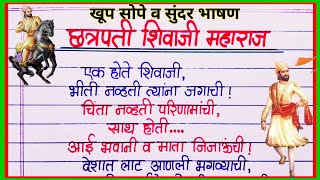 खूप सोपे व सुंदर भाषण
छत्रपती शिवाजी महाराज
एक होते शिवाजी,
भीती नव्हती त्यांना जगाची!
चिंता नव्हती परिणामांची,
साथ होती....
आई भवानी व माता जिजाऊंची!
देशात लाट आणली भगव्याची,